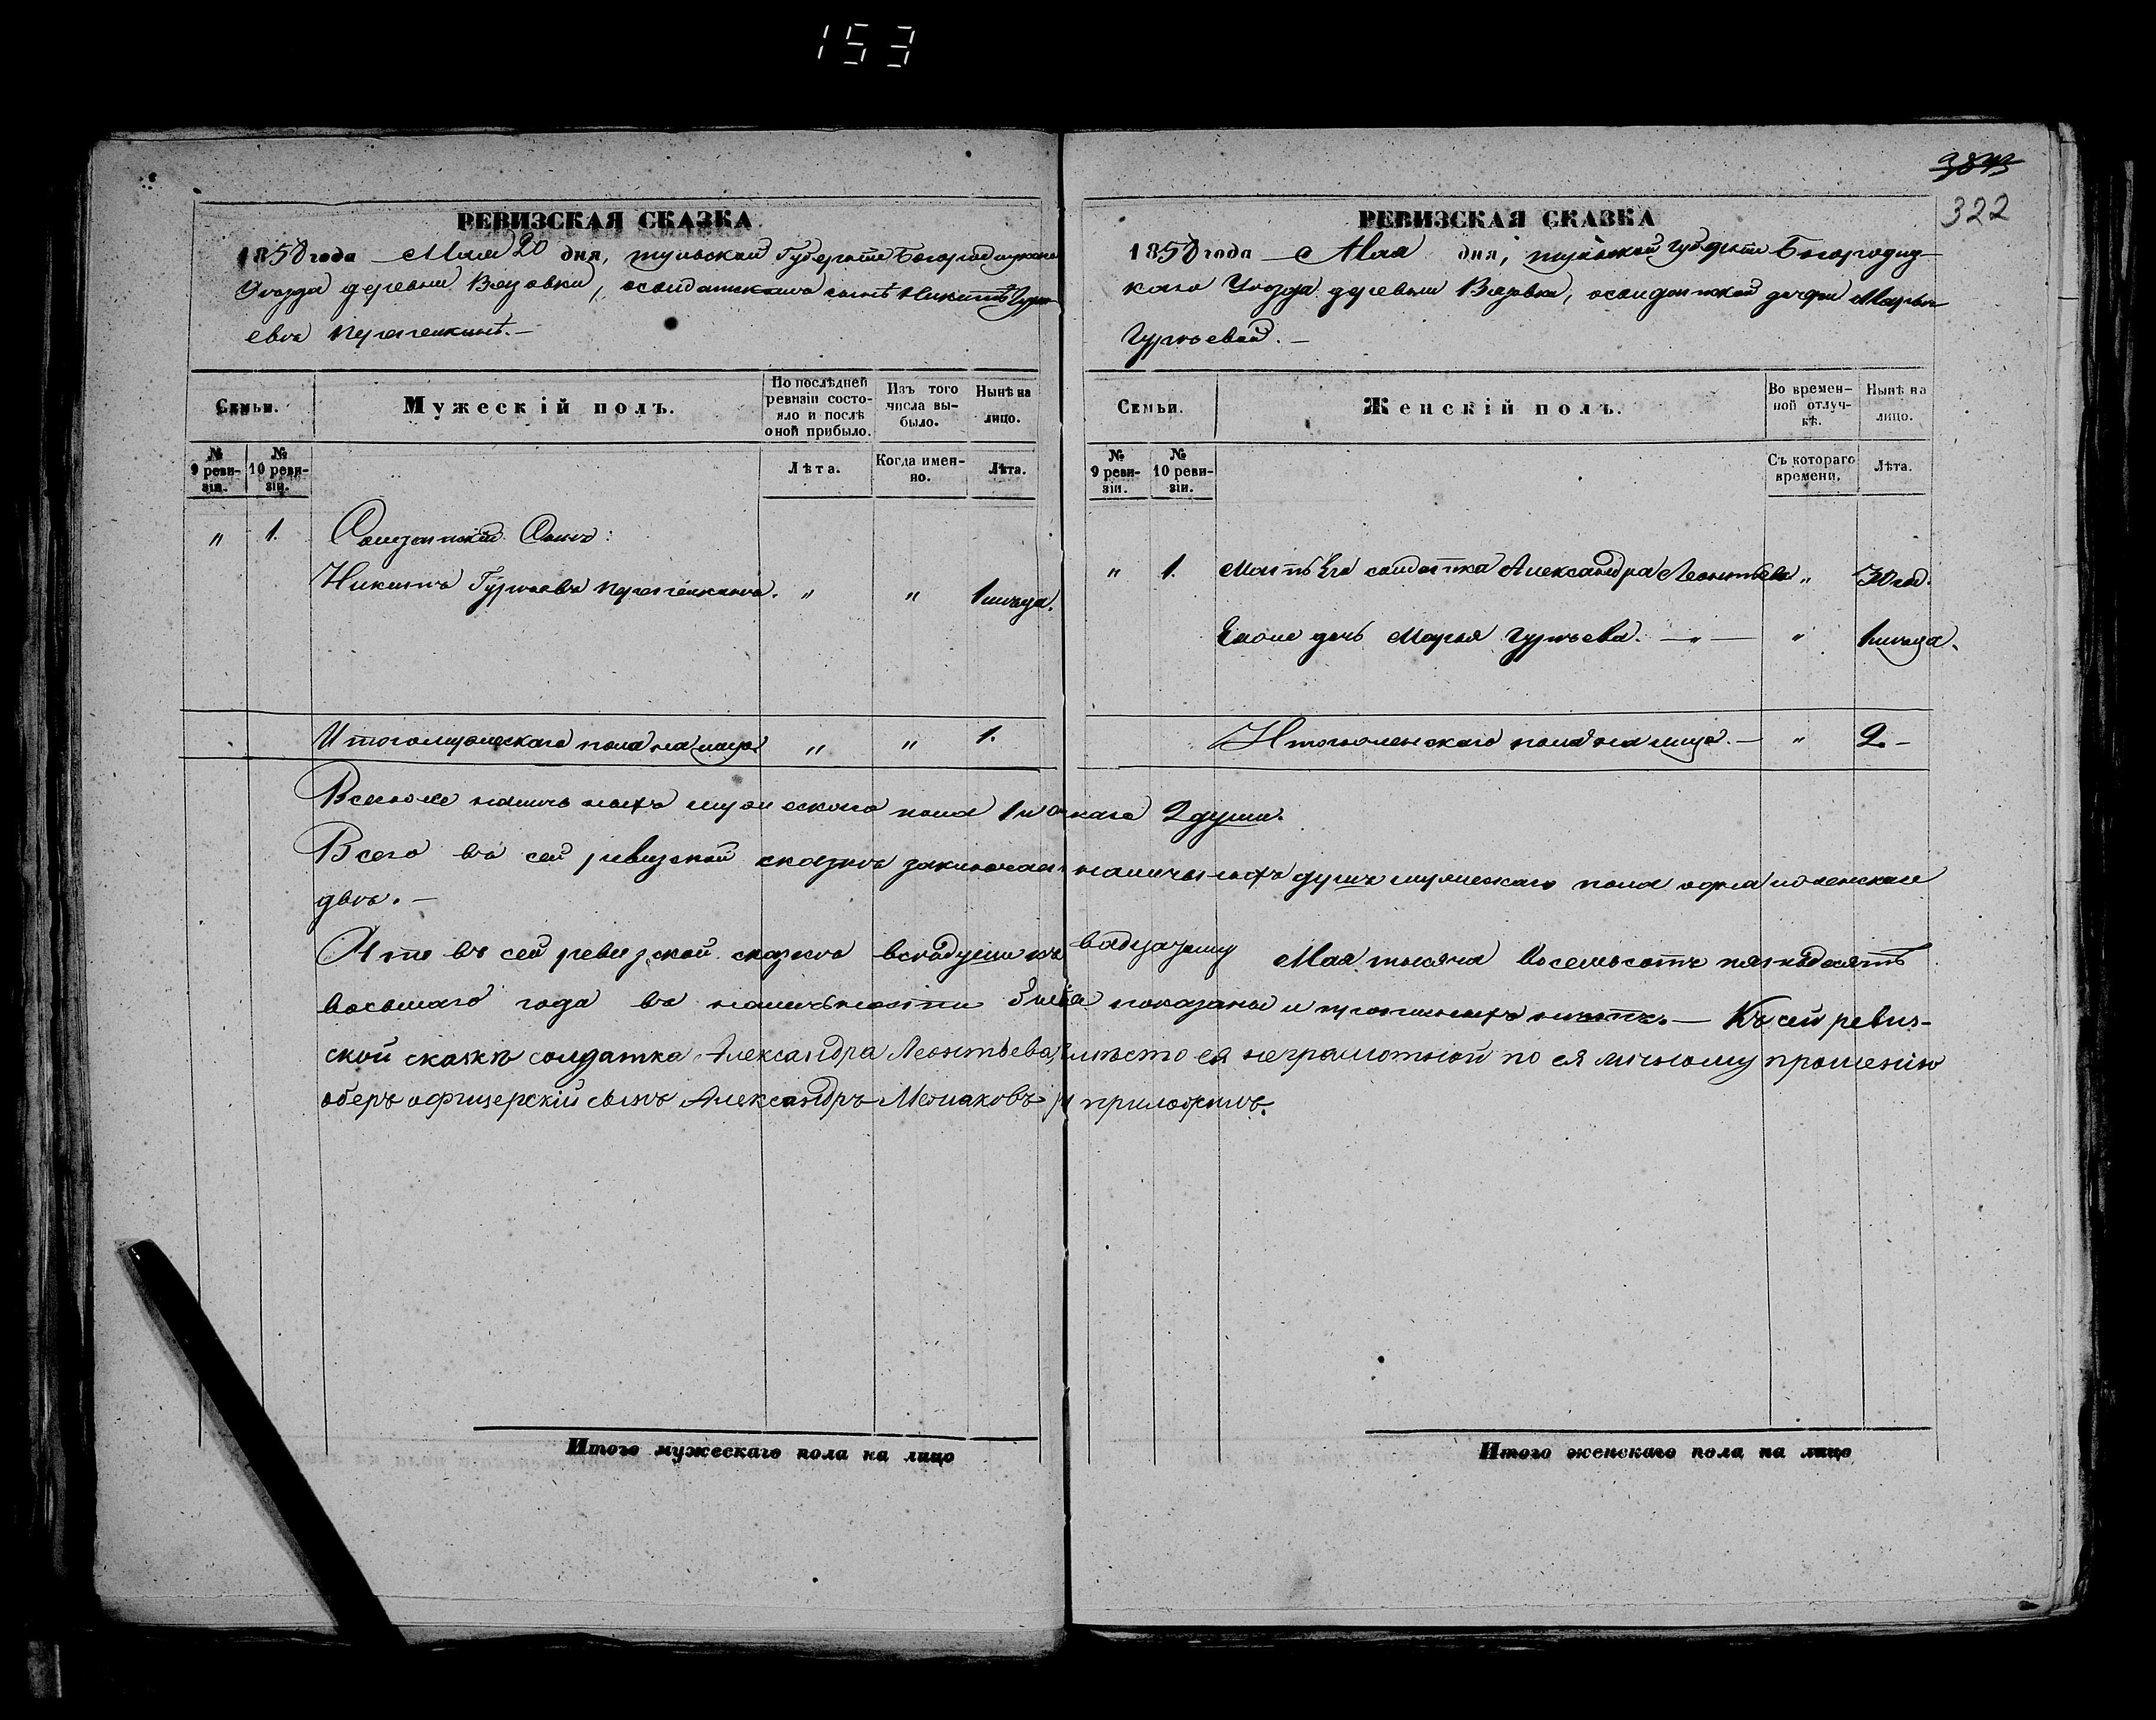 153
3843
322
РЕВИЗСКАЯ СКАЗКА
1858 года Мая 20 дня, тульской Губерніи Богородицкаго
Уѣзда деревни Вязовки, о солдатскомъ сынѣ Никитѣ Гурь-
евѣ
Семьи.
Мужескій полъ.
По послѣдней ревизіи состояло и послѣ оной прибыло.
Изъ того числа выбыло.
Нынѣ на лицо.
№ 9 ревизіи.
№ 10 ревизіи.
Лѣта.
Когда именно.
Лѣта.
" 1. Солдатскій Сынъ:
Никита Гурьевъ " " 1 мѣсяца.
Итого мужескаго пола на лицо " " 1.
РЕВИЗСКАЯ СКАЗКА
1858 года Мая дня, тульской губерніи Богородиц-
каго Уѣзда деревни Вязовки, о солдатской дочери Марьи
Гурьевой. —
Семьи.
Женскій полъ.
Во временной отлучкѣ.
Нынѣ на лицо.
№ 9 ревизіи.
№ 10 ревизіи.
Съ котораго времени.
Лѣта.
" 1. Мать Его солдатка Александра Леонтьева " 30 год.
Ея же дочь Марья Гурьева. — " — " 1 мѣсяца.
Итого женскаго пола на лицо. — " 2. —
Всего же наличныхъ мужескаго пола 1 и 2 души.
Всего въ сей ревизской сказкѣ наличныхъ душъ мужескаго пола одна и женскаго
двѣ. —
Что въ сей ревизской сказкѣ всѣ души къ двадцатому Мая тысяча восемьсотъ пятьдесятъ
восьмаго года въ наличности показаны и прописныхъ нѣтъ. — Къ сей ревиз-
ской сказкѣ солдатка Александра Леонтьева, а вмѣсто ея неграмотной по ея личному прошенію
оберъ офицерскій сынъ Александръ приложилъ.
Итого мужескаго пола на лицо
Итого женскаго пола на лицо